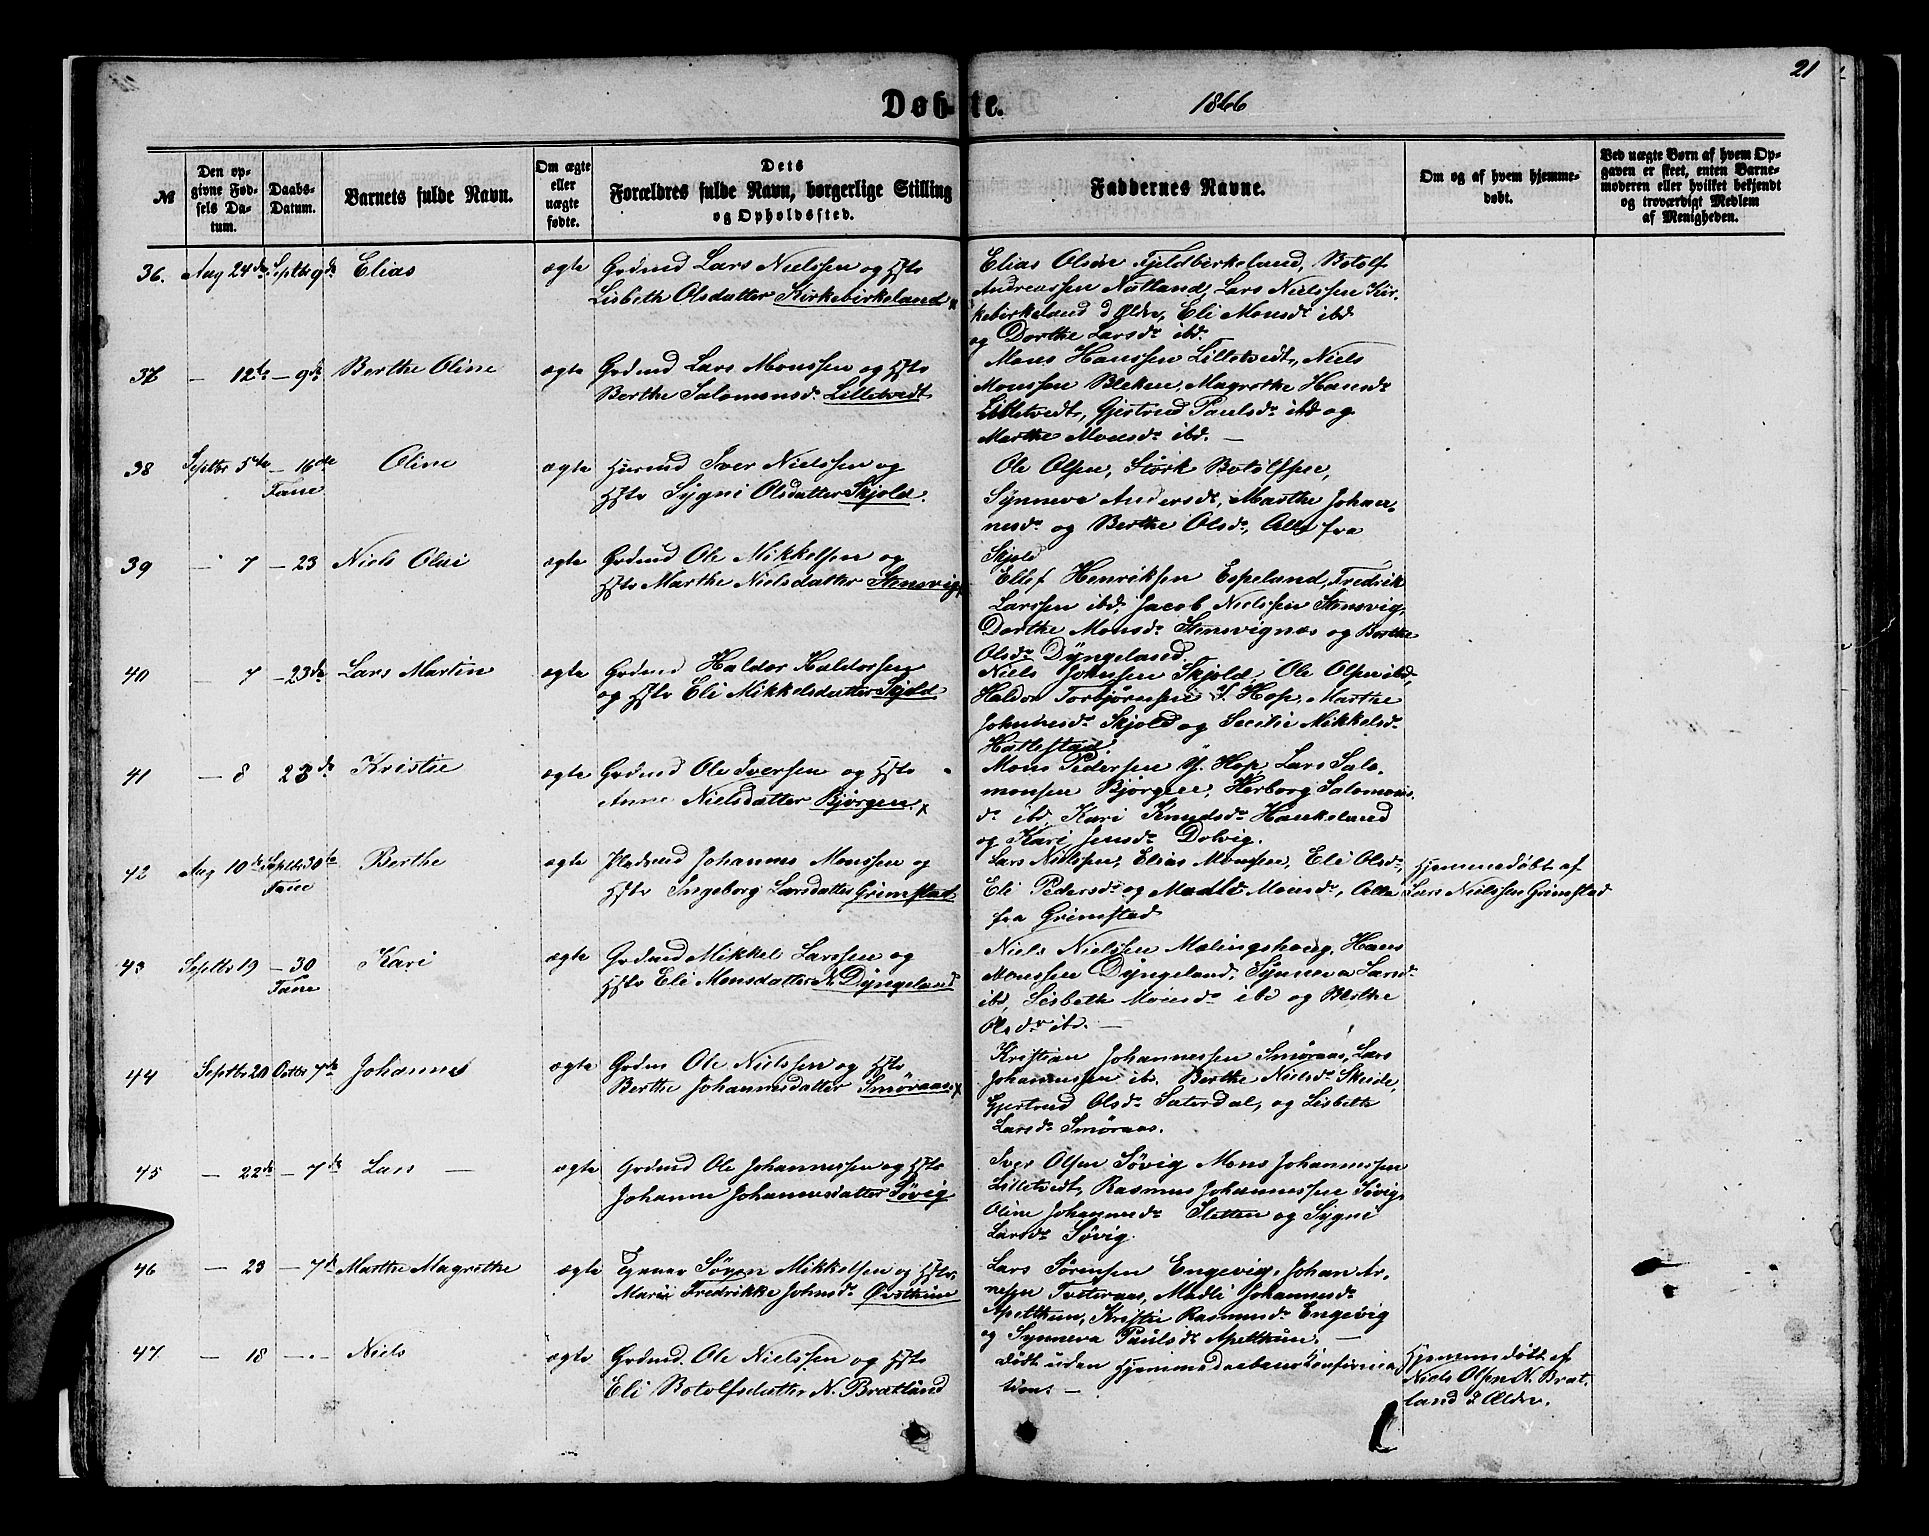 21
Døbte.
1866
№
Den op-
givne Fød-
sels Da-
tum.
Daabs-
Datum.
Barnets fulde Navn.
Om ægte
eller
uægte
fødte.
Dets
Forældres fulde Navn, borgerlige Stilling
og Opholdssted.
Faddernes Navne.
Om og af hvem hjemme-
døbt.
Ved uægte Børn af hvem Op-
gaven er skeet, enten Barne-
moderen eller hvilket bekjendt
og troværdigt Medlem
af Menigheden.
36. Aug 24de Septbr 9de Elias ægte Grdmd Lars Nielssen og Hstr
Lisbeth Olsdatter Kirkebirkeland
Elias Olsen Fjeldbirkeland, Botolf
Andreassen Natland, Lars Nielssen Kir-
kebirkeland d Ældre, Eli Monsdr ibd
og Dorthe Larsdr ibd.
37 — 12te — 9de Berthe Oline ægte Grdmd Lars Monssen og Hstr
Berthe Salomonsdr Lilletvedt
Mons Hanssen Lilletvedt, Niels
Monssen Bleken, Magrethe Hansdr
Lilletvedt, Gjertrud Paulsdr ibd og
Marthe Monsdr ibd. —
38 Septbr 5te — 16de Oline ægte Iver Nielssen og
Fane
Hstr Sygni Olsdatter Skjold.
Ole Olsen, Størk Botolfsen,
Synneva Andersdr, Marthe Johan-
nesdr og Berthe Olsdr, Alle fra
Skjold
39 — 7 — 23 Niels Olai ægte Grdmd Ole Mikkelsen og
Hstr Marthe Nielsdatter Stensvig
Ellef Henriksen Espeland, Fredrik
Larssen ibd, Jacob Nielssen Stensvig,
Dorthe Monsdr Stensvignæs og Berthe
Olsdr Dyngeland.
40 — 7 — 23de Lars Martin ægte Grdmd Haldor Haldorssen
og Hstr Eli Mikkelsdatter Skjold
Niels Johnssen Skjold, Ole Olsen ibd,
Haldor Torbjørnsen Y. Hop, Marthe
Johnnesdr Skjold og Secilie Mikkelsdr
Hattestad.
41 — 8 23de Kristie ægte Grdmd Ole Iversen og Hstr
Anne Nielsdatter Bjørgen.
Mons Pedersen Y. Hop, Lars Salo-
monsen Bjørgen, Herborg Salomons-
dr ibd, Kari Knudsdr Haukeland
og Kari Jensdr Dolvig.
42 Aug 10de Septbr 30te Berthe ægte Pladsmd Johannes Monssen og
Fane
Hstr Ingeborg Larsdatter Grimstad
Lars Nielsen, Elias Monsen, Eli Olsdr,
Eli Pedersdr og Madle Monsdr, Alle
fra Grimstad
Hjemmedøbt af
Lars Nielssen Grimstad
43 Septbr 19 — 30 Kari ægte Grdmd Mikkel Larssen og
Fane
Hstr Eli Monsdatter N. Dyngeland
Niels Nielssen Malingshaug, Hans
Monssen Dyngeland, Synneva Larsdr
ibd, Lisbeth Monsdr ibd og Berthe
Olsdr ibd. —
44 Septbr 20 Octbr 7de Johannes ægte Grdm Ole Nielssen og Hstr
Berthe Johannesdatter Smøraas
Kristian Johannessen Smøraas, Lars
Johannessen ibd, Berthe Nielsdr Skeide,
Gjertrud Olsdr Sæterdal, og Lisbeth
Larsdr Smøraas.
45 — 22de — 7de Lars — ægte Grdmd Ole Johannessen og Hstr
Johanne Johannesdatter Søvig
Iver Olsen Søvig, Mons Johannessen
Lilletvedt, Rasmus Johannessen Søvig,
Oline Johannesdr Sletten og Sygni
Larsdr Søvig.
46 — 23 — 7de Marthe Magrethe ægte Søren Mikkelsen og Hstr
Marie Fredrikke Johnsdr
Lars Sørensen Engevig, Johan Ar-
nesen Tveteraas, Madli Johannesdr
Apelthun, Kristie Rasmusdr Engevig
og Synneva Paulsdr Apelthun. —
47. — 18 — Niels ægte Grdmd. Ole Nielssen og Hstr
Eli Botolfsdatter N. Bratland
Død uden Hjemmedaabens Konfirma-
tion. —
Hjemmedøbt af
Niels Olsen N. Brat-
land d Ældre.